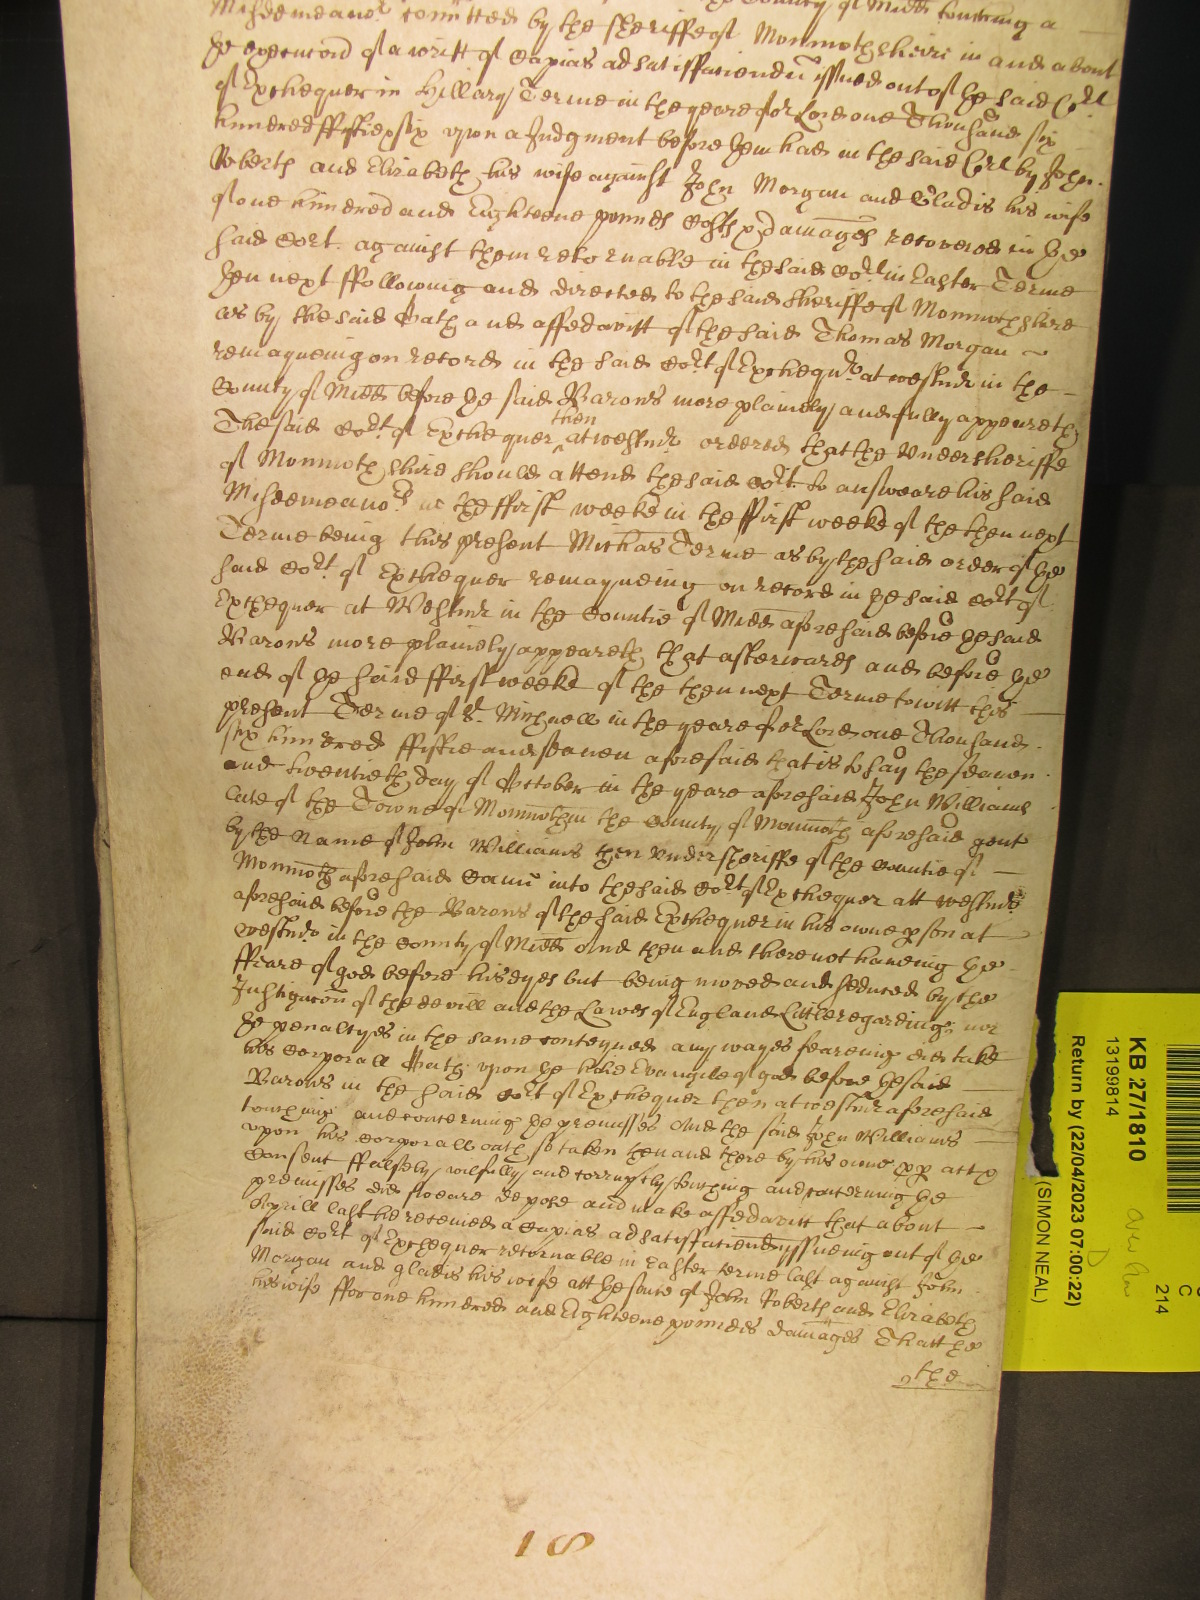 County of Midd touching a
Misdemeanor comitted by the sheriffe of Monmothshire in and about
the execucion of a writt of Capias ad satisfaciendu issued out of the said Cort
of Exchequer in Hillary Terme in the yeare of or Lord one Thousand six
hundred fiftie & six upon a Judgment before then had in the said Cort by John
Roberth and Elizabeth his wife against John Morgan and Gladis his wife
of one hundred and Eighteene pounds Costs & Damages recovered in the
said Cort against them retornable in the said Cort in Easter Terme
then next ffollowing and directed to the said Sheriffe of Monmothshire
as by the said Oath and affedavitt of the said Thomas Morgan
remayneing on record in the said Cort of Excheqr at westmr in the
County of Midd before the said Barons more plainely and fully appeareth
The said Cort of Exchequer then at westmr ordered that the Undersheriffe
of Monmothshire should attend the said Cort to answeare his said
Misdemeanor in the ffirst weeke in the ffirst weeke of the then next
Terme being this present Michas Terme as by the said order of the
said Cort of Exchequer remayneing on record in the said Cort of
Exchequer at Westmr in the Countie of Midd aforesaid before the said
Barons more plainely appeareth that afterwards and before the
end of the said ffirst weeke of the then next Terme to witt this
present Terme of St. Michaell in the yeare of or Lord one Thousand
six hundred ffiftie and seaven aforesaid that is to say the seaven
and twentieth day of October in the yeare aforesaid John Williams
late of the Towne of Monmoth in the County of Monmoth aforesaid gent
by the Name of John Williams then Undersheriffe of the Countie of
Monmoth aforesaid Came into the said Cort of Exchequer att westmr
aforesaid before the Barons of the said Exchequer in his owne pson at
westmr in the County of Midd And then and there not haveing the
ffeare of god before his eyes but being moved and seduced by the
Instigacon of the devill and the Lawes of England Little regarding nor
the penaltyes in the same conteyned any wayes feareing did take
his Corporall Oath upon the holie Evangile of god before the said
Barons in the said Cort of Exchequer then at westmr aforesaid
touching and concerning the premisses And the said John Williams
upon his Corporall oath so taken then and there by his owne pp act &
Consent ffalsely wilfully and corruptly touching and concerning the
premisses did sweare depose and make affedavitt that about
Aprill last he received a Capias ad satisfaciend yssueing out of the
said Cort of Exchequer retornable in Easter terme last against John
Morgan and gladis his wife att the suite of John Roberth and Elizabeth
his wife ffor one hundred and Eighteene pounds damages That the
the
18
KB 27/1810
13199814
Return by (22/04/2023 07:00:22)
(SIMON NEAL)
214
C
D